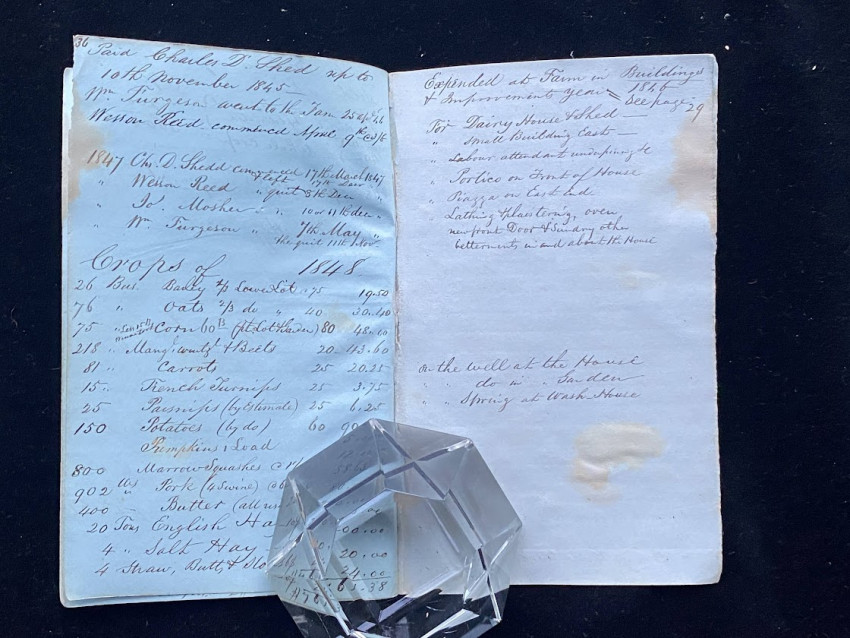 36
Paid Charles D. Shed up to
10th November 1845
Wm Turgeson went to th Farm 25
Wesson Reed commenced April 9th
1847 Chs. D. Shedd commenced 17th March 1847
" Wesson Reed " quit 8th Decr
" Jo. Mosher " " 10 or 11th decr "
" Wm. Turgeson " 7th May "
the quit 11th Novr
Crops of 1848
26 Bus. Barley 2/3 Lower Lot .75 19.50
76 " Oats 2/3 do " 40 30.40
75 " Corn 60 80
218 " & Beets 20 43.60
81 " Carrots 25 20.25
15 " French Turnips 25 3.75
25 Parsnips (by Estimate) 25 6.25
150 Potatoes (by do) 60 90
Pumpkins 1 Load
800 Marrow Squashes
902 lbs Pork (4 Swine)
400 " Butter (all
20 Tons English Hay
4 " Salt Hay 20.00
4 Straw, Butts & 24.00
Expended at Farm in Buildings
& Improvements year 1846
See page 29
For Dairy House & Shed —
" Small Building East —
" Labour attendant underpinning &c
" Portico on Front of House
" Piazza on East End
" Lathing & plastering, oven
new front Door & Sundry other
betterments in and about the House
On the well at the House
" " do in " Garden
" " Spring at Wash House